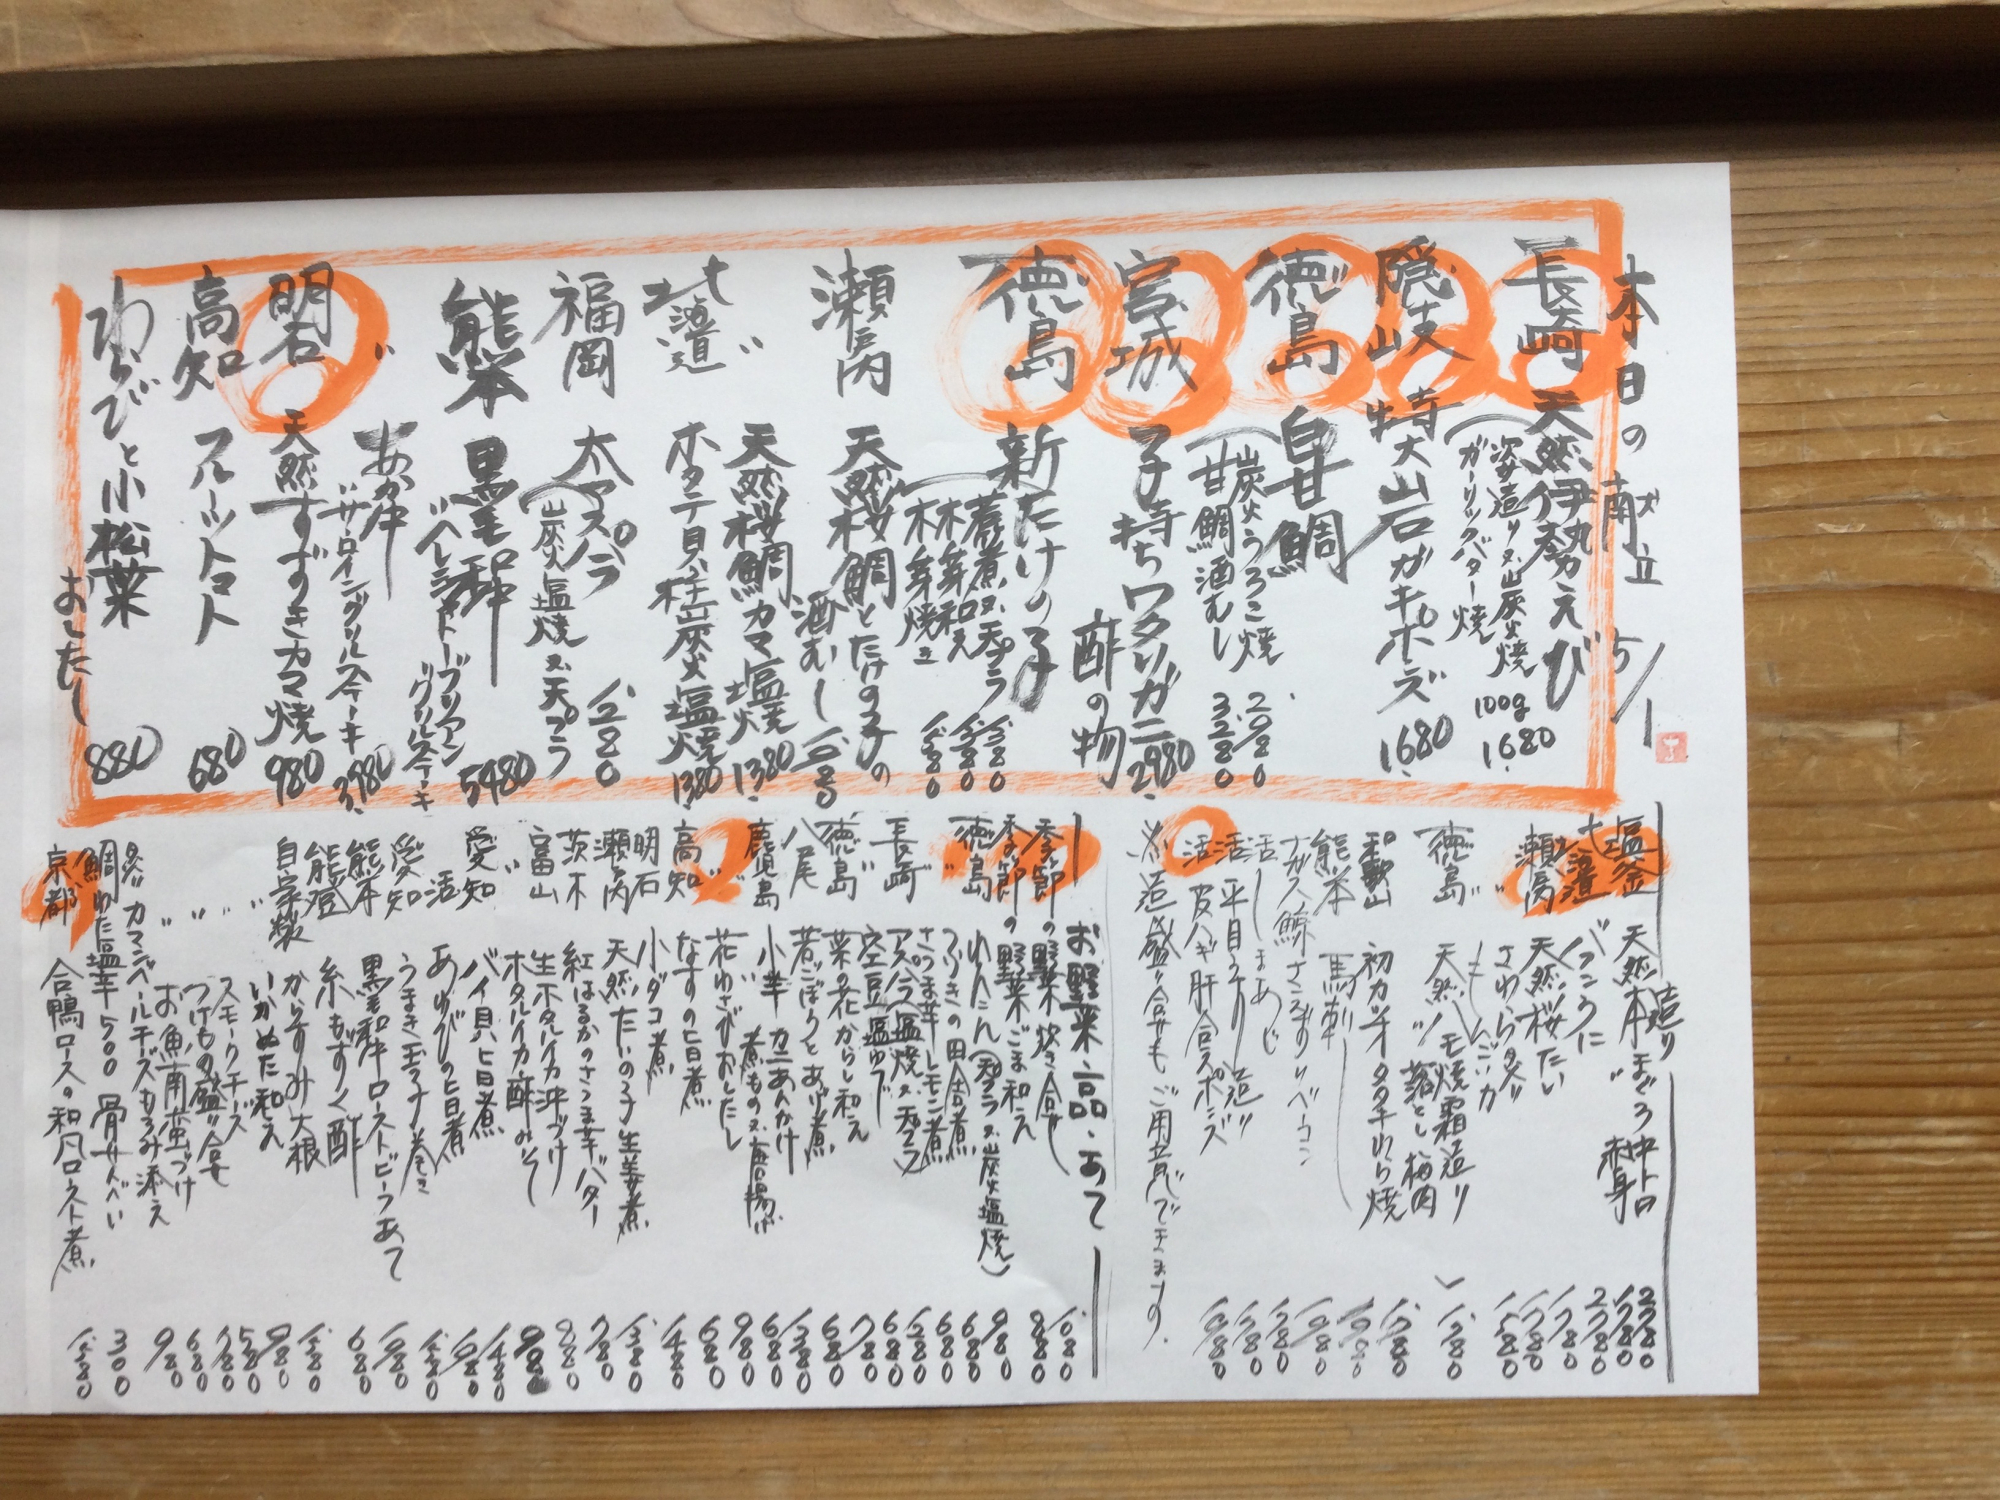 本日の献立 5/1
長崎 天然伊勢えび
姿造り又炭火焼 100g 1.680
ガーリックバター焼
隠岐 特大岩ガキポンズ 1.680
徳島 白甘鯛
炭火うろこ焼 2.980
甘鯛酒むし 3.280
宮城 子持ちワタリガニ 2.980
酢の物
徳島 新たけの子
若煮又天プラ 1.380
木の芽和え 1.380
木の芽焼き 1.380
瀬戸内 天然桜鯛とたけの子の
酒むし
〃 天然桜鯛カマ塩焼 1.380
北海道 ホタテ貝柱炭火塩焼 1.380
福岡 太アスパラ 1.280
(炭火塩焼又天プラ
熊本 黒毛和牛 5.480
〃ヘレシャトーブリアン
グリルステーキ
〃 あか牛 3.980
〃サーロイングリルステーキ
明石 天然すずきカマ焼 980
高知 フルーツトマト 680
わらびと小松菜 880
おしたし
造り
塩釜 天然本まぐろ 中トロ 2.780
〃 赤身 1.780
北海道 バフンうに 2.780
瀬戸内 天然桜たい 1.780
〃 さわらタタキ 1.780
〃 もんごいか 1.580
徳島 天然ハモ焼霜造り 1.380
〃 落とし梅肉
和歌山 初カツオタタキわら焼 1.780
熊本 馬刺し
ナガス鯨さえずりベーコン 1.980
活〆しまあじ 1.780
活〆平目うす造り 1.780
活 皮ハギ肝合スポンズ 1.980
※造り盛り合せもご用意できます。
お野菜・一品・あて
季節の野菜炊き合せ 1.080
季節の野菜ごま和え 880
徳島 れんこん(天プラ又炭火塩焼) 980
〃 ふきの田舎煮 680
〃 さつま芋レモン煮 680
長崎 アスパラ塩焼又天プラ 1.280
〃 空豆塩ゆで 680
徳島 菜の花からし和え 780
八尾 若ごぼうとあげ煮 680
鹿児島 小芋カニあんかけ 1.380
〃 〃 煮もの又唐揚げ 680
〃 花わさびおしたし 980
高知 なすの旨煮 680
明石 小ダコ煮 1.480
瀬戸内 天然たいの子生姜煮 1.380
茨木 紅はるかのさつま芋バター 780
富山 生ホタルイカ沖づけ 880
〃 ホタルイカ酢みそ 980
愛知 バイ貝旨煮 1.480
活 あわびの旨煮
愛知 うまき玉子巻き 1.580
熊本 黒毛和牛ローストビーフあて 1.980
能登 糸もずく酢 680
自家製 からすみ大根 1.580
〃 いかぬた和え
〃 スモークチーズ
〃 つけもの盛り合せ
〃 お魚南蛮づけ
〃 カマンベールチーズもろみ添え 980
鯛わた塩辛 500 骨せんべい 300
京都 合鴨ロースの和風ロースト煮 1.580